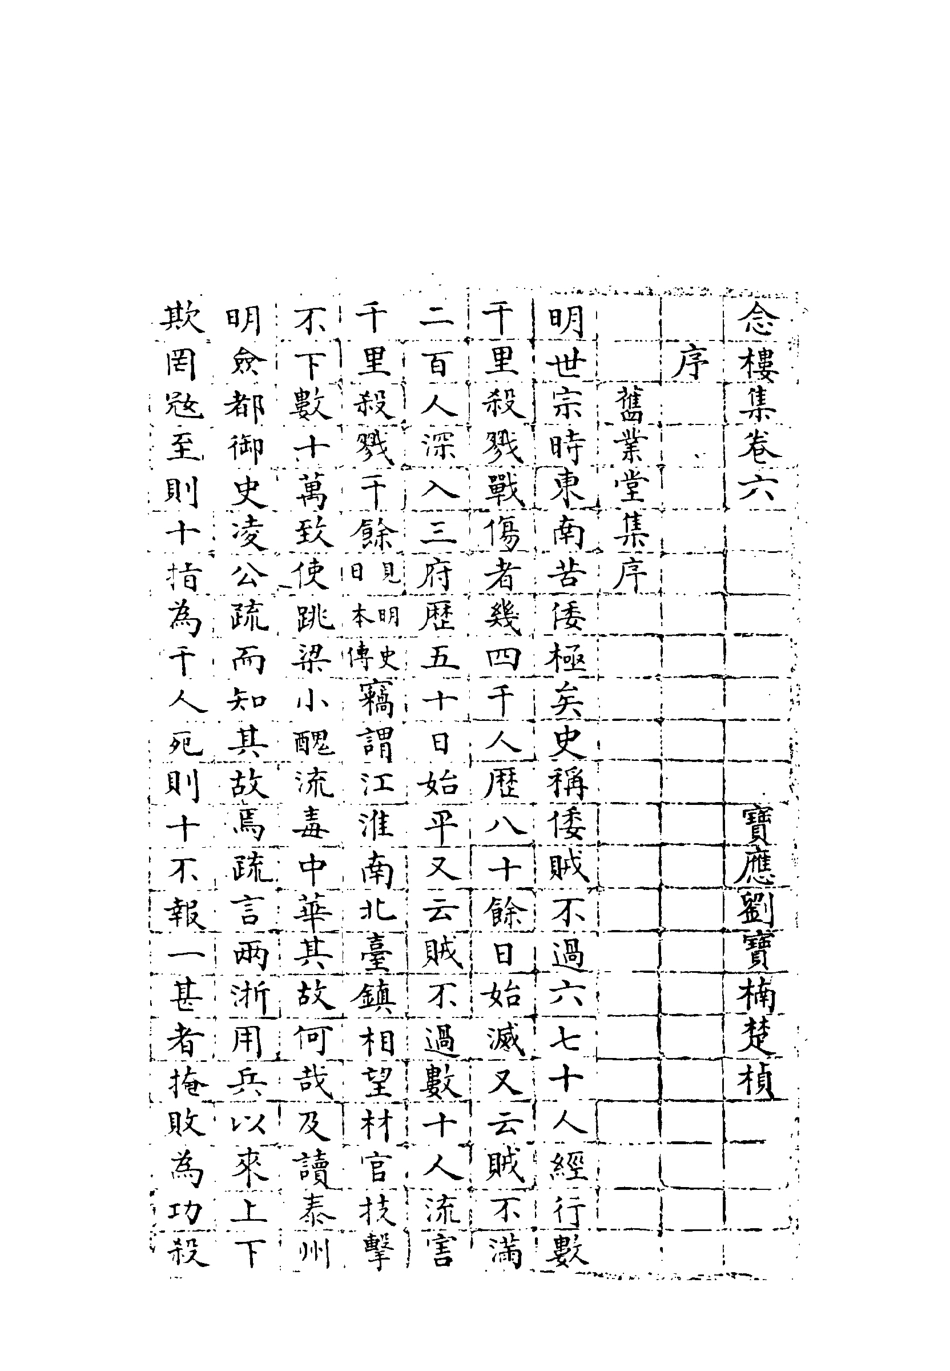 念樓集卷六 寶應劉寶楠楚楨
序
舊業堂集序
明世宗時東南苦倭極矣史稱倭賊不過六七十人經行數
千里殺戮戰傷者幾四千人歷八十餘日始滅又云賊不滿
二百人深入三府歷五十日始平又云賊不過數十人流害
千里殺戮千餘見明史日本傳竊謂江淮南北臺鎮相望材官技擊
不下數十萬致使跳梁小醜流毒中華其故何哉及讀泰州
明僉都御史凌公疏而知其故焉疏言兩浙用兵以來上下
欺罔
至則十指為千人死則十不報一甚者掩敗為功殺